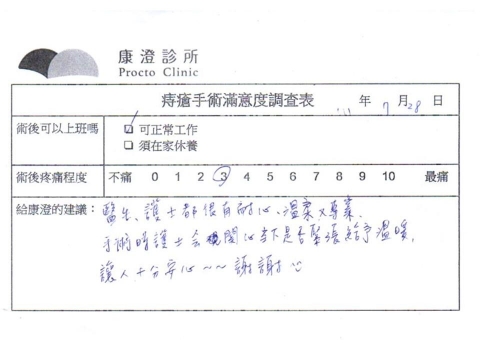 康澄診所
Procto Clinic
痔瘡手術滿意度調查表 '11 年 7 月 28 日
術後可以上班嗎 可正常工作
須在家休養
術後疼痛程度 不痛 0 1 2 3 4 5 6 7 8 9 10 最痛
給康澄的建議: 醫生、護士都很有耐心、溫柔又專業.
手術時護士會關心當下是否緊張給予溫暖,
讓人十分安心~~謝謝